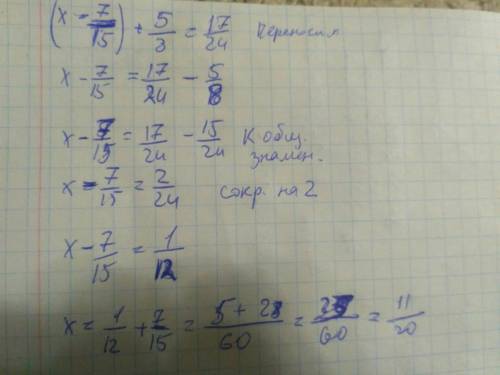 (x - 7/15) + 5/3 = 17/24 Переносим
x - 7/15 = 17/24 - 5/8
x - 7/15 = 17/24 - 15/24 К общ.
знамен.
x - 7/15 = 2/24 сокр. на 2
x - 7/15 = 1/12
x = 1/12 + 7/15 = (5 + 28)/60 = 33/60 = 11/20